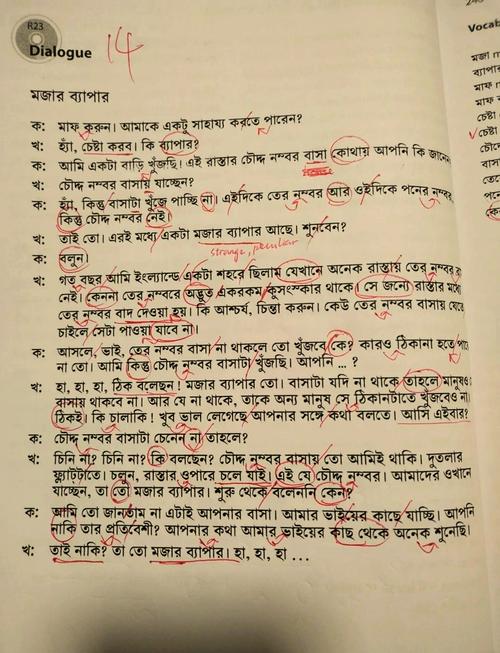 R23
Dialogue 14
Vocab
মজার ব্যাপার
ক: মাফ করুন। আমাকে একটু সাহায্য করতে পারেন?
খ: হ্যাঁ, চেষ্টা করব। কি ব্যাপার?
ক: আমি একটা বাড়ি খুঁজছি। এই রাস্তার চৌদ্দ নম্বর বাসা কোথায় আপনি কি জানেন
খ: চৌদ্দ নম্বর বাসায় যাচ্ছেন?
ক: হ্যাঁ, কিন্তু বাসাটা খুঁজে পাচ্ছি না। এইদিকে তের নম্বর আর ওইদিকে পনের নম্বর,
কিন্তু চৌদ্দ নম্বর নেই।
খ: তাই তো। এরই মধ্যে একটা মজার ব্যাপার আছে। শুনবেন?
strange, peculiar
ক: বলুন।
খ: গত বছর আমি ইংল্যান্ডে একটা শহরে ছিলাম যেখানে অনেক রাস্তায় তের নম্বর
নেই। কেননা তের নম্বরে অদ্ভুত একরকম কুসংস্কার থাকে। সে জন্যে রাস্তার মধ্যে
তের নম্বর বাদ দেওয়া হয়। কি আশ্চর্য, চিন্তা করুন। কেউ তের নম্বর বাসায় যেতে
চাইলে সেটা পাওয়া যাবে না।
ক: আসলে, ভাই, তের নম্বর বাসা না থাকলে তো খুঁজবে কে? কারও ঠিকানা হতে পারে
না তো। আমি কিন্তু চৌদ্দ নম্বর বাসাটা খুঁজছি। আপনি ... ?
খ: হা, হা, হা, ঠিক বলেছেন! মজার ব্যাপার তো। বাসাটা যদি না থাকে তাহলে মানুষও
বাসায় থাকবে না। আর যে না থাকে, তাকে অন্য মানুষ সে ঠিকানাটাতে খুঁজবেও না।
ঠিকই। কি চালাকি! খুব ভাল লেগেছে আপনার সঙ্গে কথা বলতে। আসি এইবার?
ক: চৌদ্দ নম্বর বাসাটা চেনেন না তাহলে?
খ: চিনি না? চিনি না? কি বলছেন? চৌদ্দ নম্বর বাসায় তো আমিই থাকি। দুতলার
ফ্ল্যাটটাতে। চলুন, রাস্তার ওপারে চলে যাই। এই যে চৌদ্দ নম্বর। আমাদের ওখানে
যাচ্ছেন, তা তো মজার ব্যাপার। শুরু থেকে বলেননি কেন?
ক: আমি তো জানতাম না এটাই আপনার বাসা। আমার ভাইয়ের কাছে যাচ্ছি। আপনি
নাকি তার প্রতিবেশী? আপনার কথা আমার ভাইয়ের কাছ থেকে অনেক শুনেছি।
খ: তাই নাকি? তা তো মজার ব্যাপার। হা, হা, হা ...